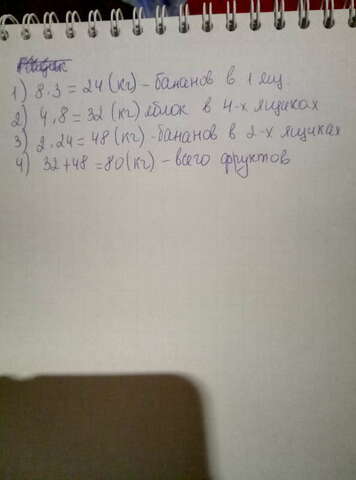 1) 8·3 = 24 (кг) – бананов в 1 ящ.
2) 4·8 = 32 (кг) яблок в 4-х ящиках
3) 2·24 = 48 (кг) - бананов в 2-х ящиках
4) 32+48 = 80 (кг) – всего фруктов